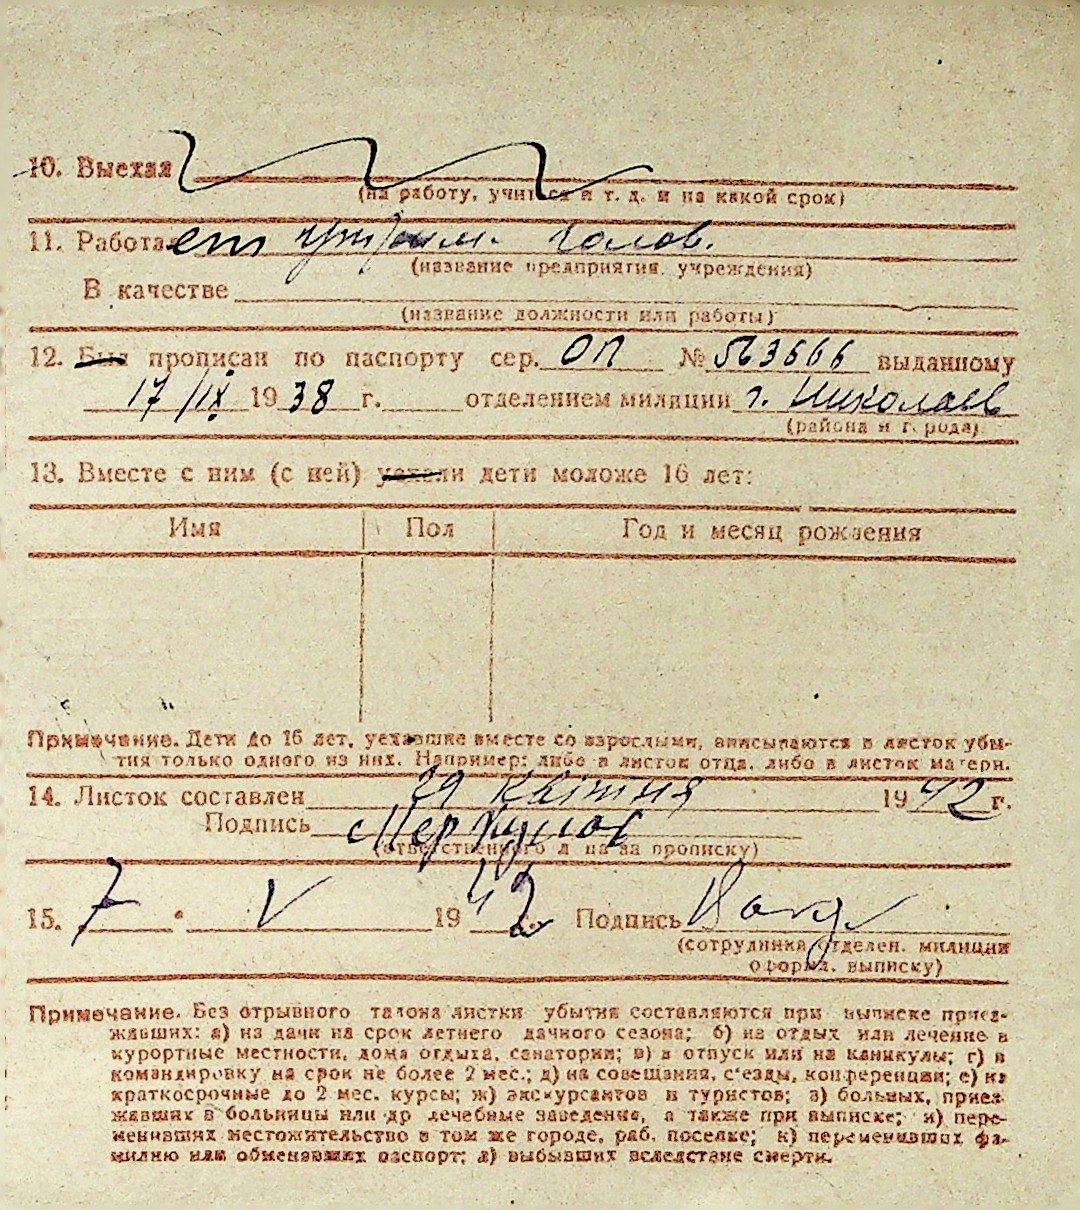 10. Выехал
(на работу, учиться и т. д. и на какой срок)
11. Работает
(название предприятия, учреждения)
В качестве
(название должности или работы)
12. Был прописан по паспорту сер. ОП № 563666 выданному
17/IX 1938 г. отделением милиции г. Николаев
(района и города)
13. Вместе с ним (с ней) уехали дети моложе 16 лет:
Имя Пол Год и месяц рождения
Примечание. Дети до 16 лет, уехавшие вместе со взрослыми, вписываются в листок убы-
тия только одного из них. Например: либо в листок отца, либо в листок матери.
14. Листок составлен 29 квітня 1942 г.
Подпись Меркулов
(ответственного лица за прописку)
15. 7 V 1942 г. Подпись
(сотрудника отделен. милиции
оформ. выписку)
Примечание. Без отрывного талона листки убытия составляются при выписке приез-
жавших: а) из дачи на срок летнего дачного сезона; б) на отдых или лечение в
курортные местности, дома отдыха, санатории; в) в отпуск или на каникулы; г) в
командировку на срок не более 2 мес.; д) на совещания, с'езды, конференции; е) на
краткосрочные до 2 мес. курсы; ж) экскурсантов и туристов; з) больных, приез-
жавших в больницы или др лечебные заведения, а также при выписке; и) пере-
менивших местожительство в том же городе, раб. поселке; к) переменивших фа-
милию или обменявших паспорт; л) выбывших вследствие смерти.